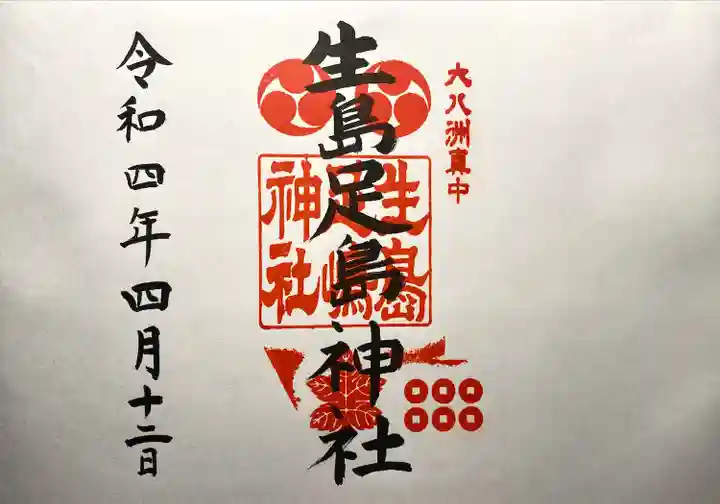 大八洲真中
生島足島神社
生島足嶋神社
令和四年四月十二日